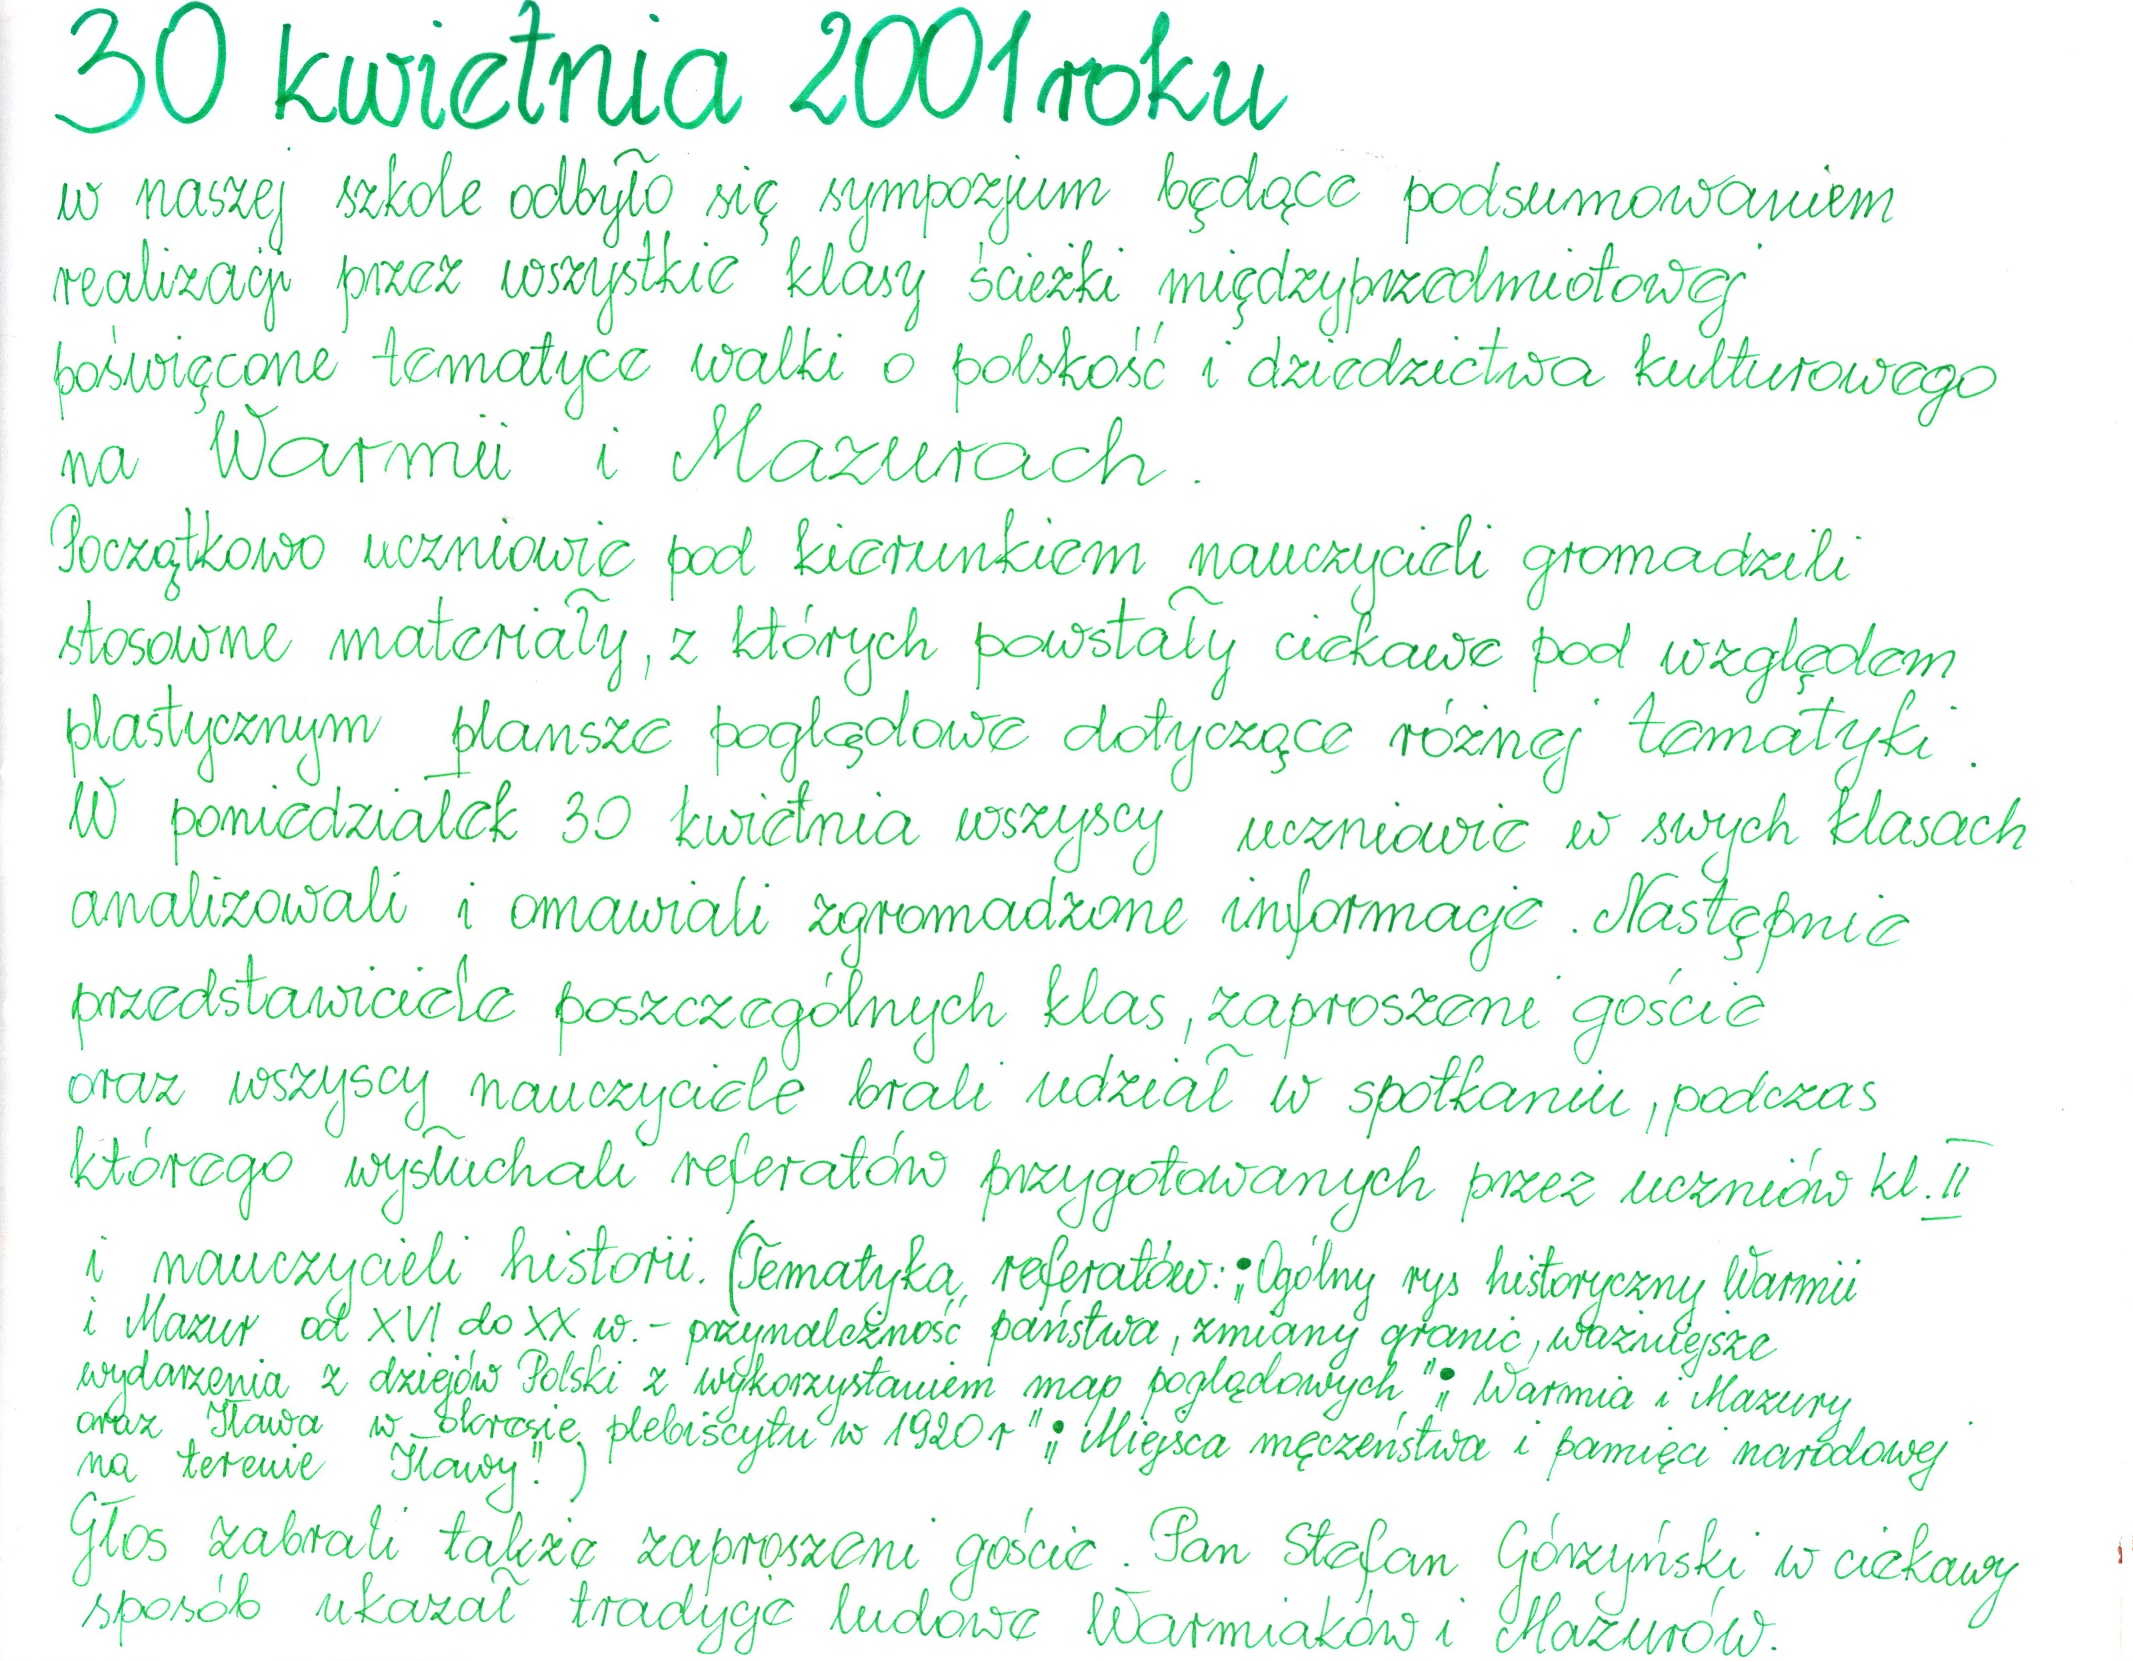 30 kwietnia 2001 roku
w naszej szkole odbyło się sympozjum będące podsumowaniem
realizacji przez wszystkie klasy ścieżki międzyprzedmiotowej
poświęcone tematyce walki o polskość i dziedzictwa kulturowego
na Warmii i Mazurach.
Początkowo uczniowie pod kierunkiem nauczycieli gromadzili
stosowne materiały, z których powstały ciekawe pod względem
plastycznym plansze poglądowe dotyczące różnej tematyki.
W poniedziałek 30 kwietnia wszyscy uczniowie w swych klasach
analizowali i omawiali zgromadzone informacje. Następnie
przedstawiciele poszczególnych klas, zaproszeni goście
oraz wszyscy nauczyciele brali udział w spotkaniu, podczas
którego wysłuchali referatów przygotowanych przez uczniów kl. II
i nauczycieli historii. (Tematyka referatów: • „Ogólny rys historyczny Warmii
i Mazur od XVI do XX w. - przynależność państwa, zmiany granic, ważniejsze
wydarzenia z dziejów Polski z wykorzystaniem map poglądowych" • „Warmia i Mazury
oraz Iława w okresie plebiscytu w 1920 r" • „Miejsca męczeństwa i pamięci narodowej
na terenie Iławy".)
Głos zabrali także zaproszeni goście. Pan Stefan Górzyński w ciekawy
sposób ukazał tradycje ludowe Warmiaków i Mazurów.